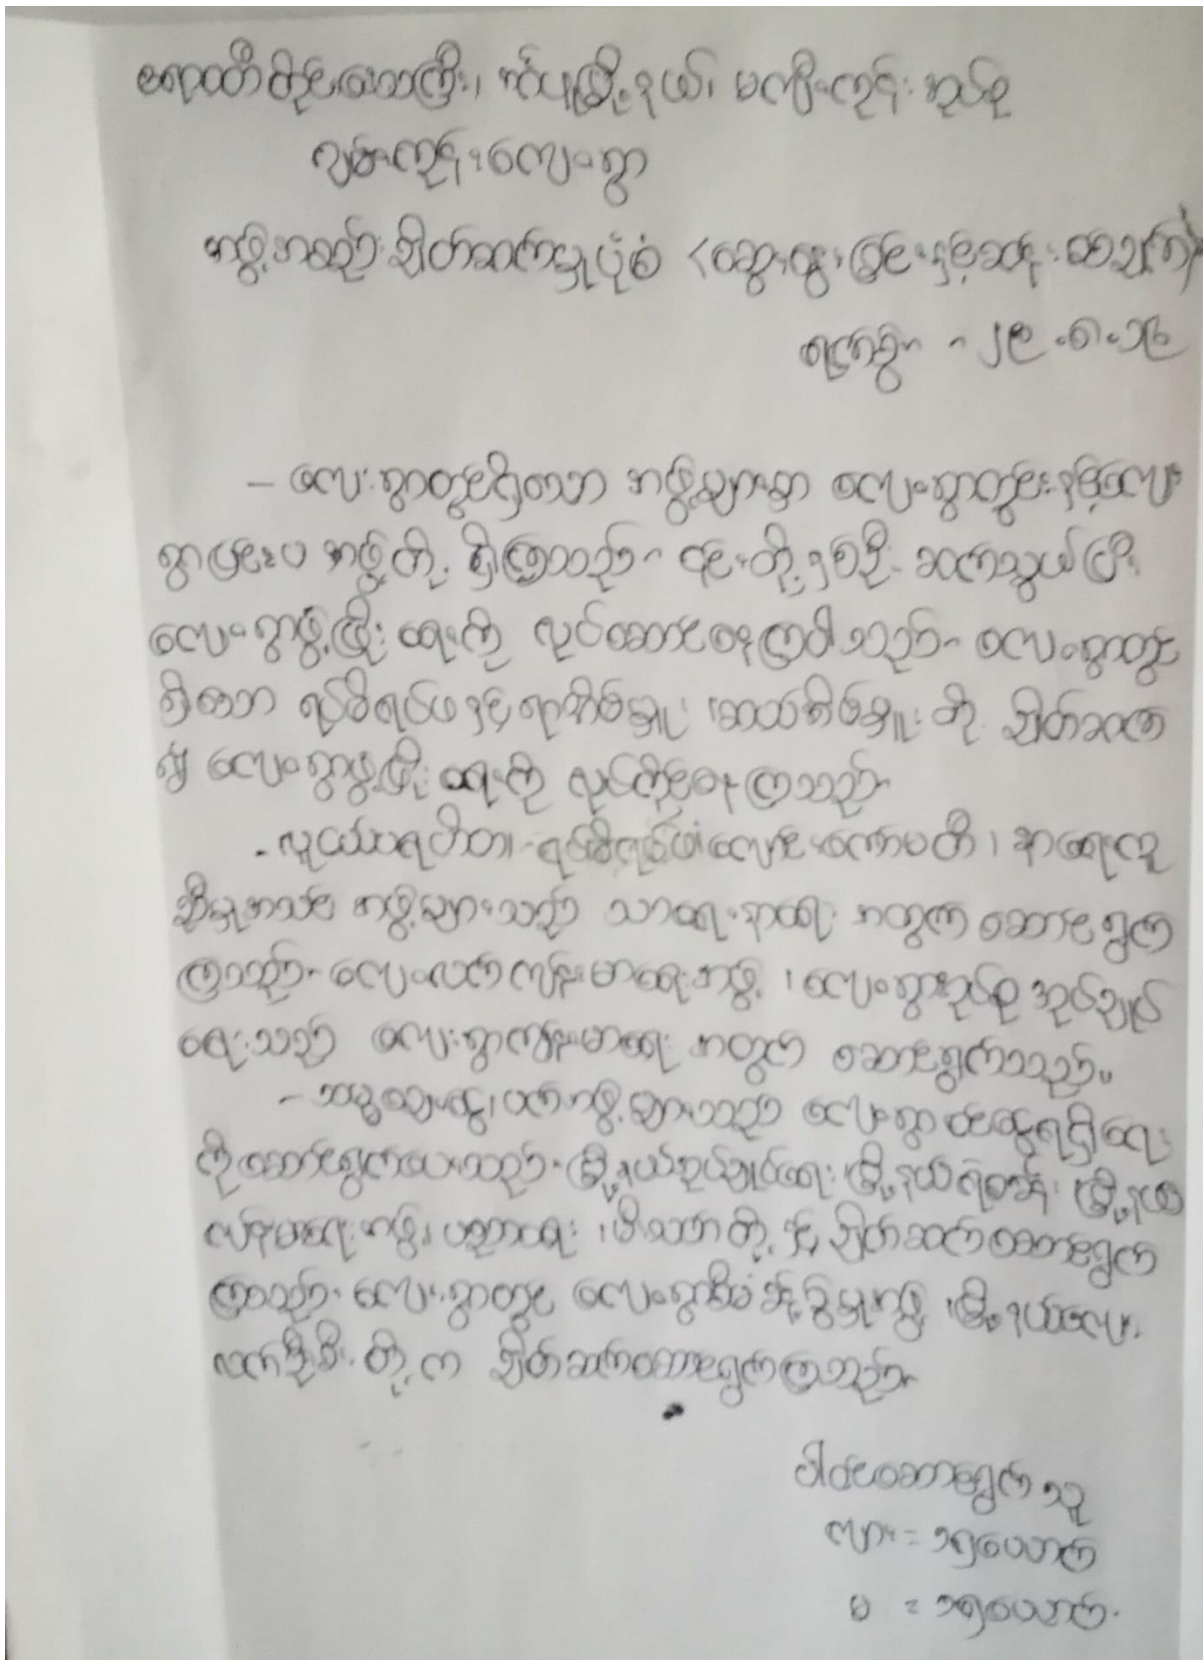 ဧရာဝတီတိုင်းဒေသကြီး၊ ကျုံပျော်မြို့နယ်၊ မကျီးကုန်း အုပ်စု
ကုန်းကျေးရွာ
အဖွဲ့အစည်း ချိတ်ဆက်မှုပုံစံ (ဆွေးနွေးခြင်းနှင့်ဆန်းစစ်ချက်)
ရက်စွဲ - ၂၉.၈.၁၆
- ကျေးရွာတွင်ရှိသော အဖွဲ့များမှာ ကျေးရွာတွင်းနှင့်ကျေး
ရွာပြင်ပ အဖွဲ့တို့ ရှိကြသည်။ ၎င်းတို့နှစ်ဦး ဆက်သွယ်ပြီး
ကျေးရွာဖွံ့ဖြိုးရေးကို လုပ်ဆောင်နေကြပါသည်။ ကျေးရွာတွင်
ရှိသော ရပ်မိရပ်ဖနှင့် ရာအိမ်မှူး ၊ဆယ်အိမ်မှူး တို့ ချိတ်ဆက်
၍ ကျေးရွာဖွံ့ဖြိုးရေးကို လုပ်ကိုင်နေကြသည်။
- လူငယ် ရပ်မိရပ်ဖ၊ ကျောင်းကော်မတီ၊ နာရေးကူ
ညီမှုအသင်း အဖွဲ့များသည် သာရေးနာရေး အတွက် ဆောင်ရွက်
ကြသည်။ ကျေးလက်ကျန်းမာရေးအဖွဲ့ ၊ကျေးရွာအုပ်စု အုပ်ချုပ်
ရေးသည် ကျေးရွာကျန်းမာရေး အတွက် ဆောင်ရွက်သည်။
- အဖွဲ့များသည် ကျေးရွာ ရရှိရေး
ကိုဆောင်ရွက်ပေးသည်။ မြို့နယ်အုပ်ချုပ်ရေး မြို့နယ်ရဲစခန်း မြို့နယ်
ကျန်းမာရေးအဖွဲ့၊ ပညာရေး ၊မီးသတ်တို့နှင့် ချိတ်ဆက်ဆောင်ရွက်
ကြသည်။ ကျေးရွာတွင် ကျေးရွာစီမံခန့်ခွဲမှုအဖွဲ့ ၊မြို့နယ်ကျေး
လက်ဦးစီး တို့က ချိတ်ဆက်ဆောင်ရွက်ကြသည်။
ပါဝင်ဆောင်ရွက်သူ
ကျား = ၁၅ယောက်
မ = ၁၅ယောက်